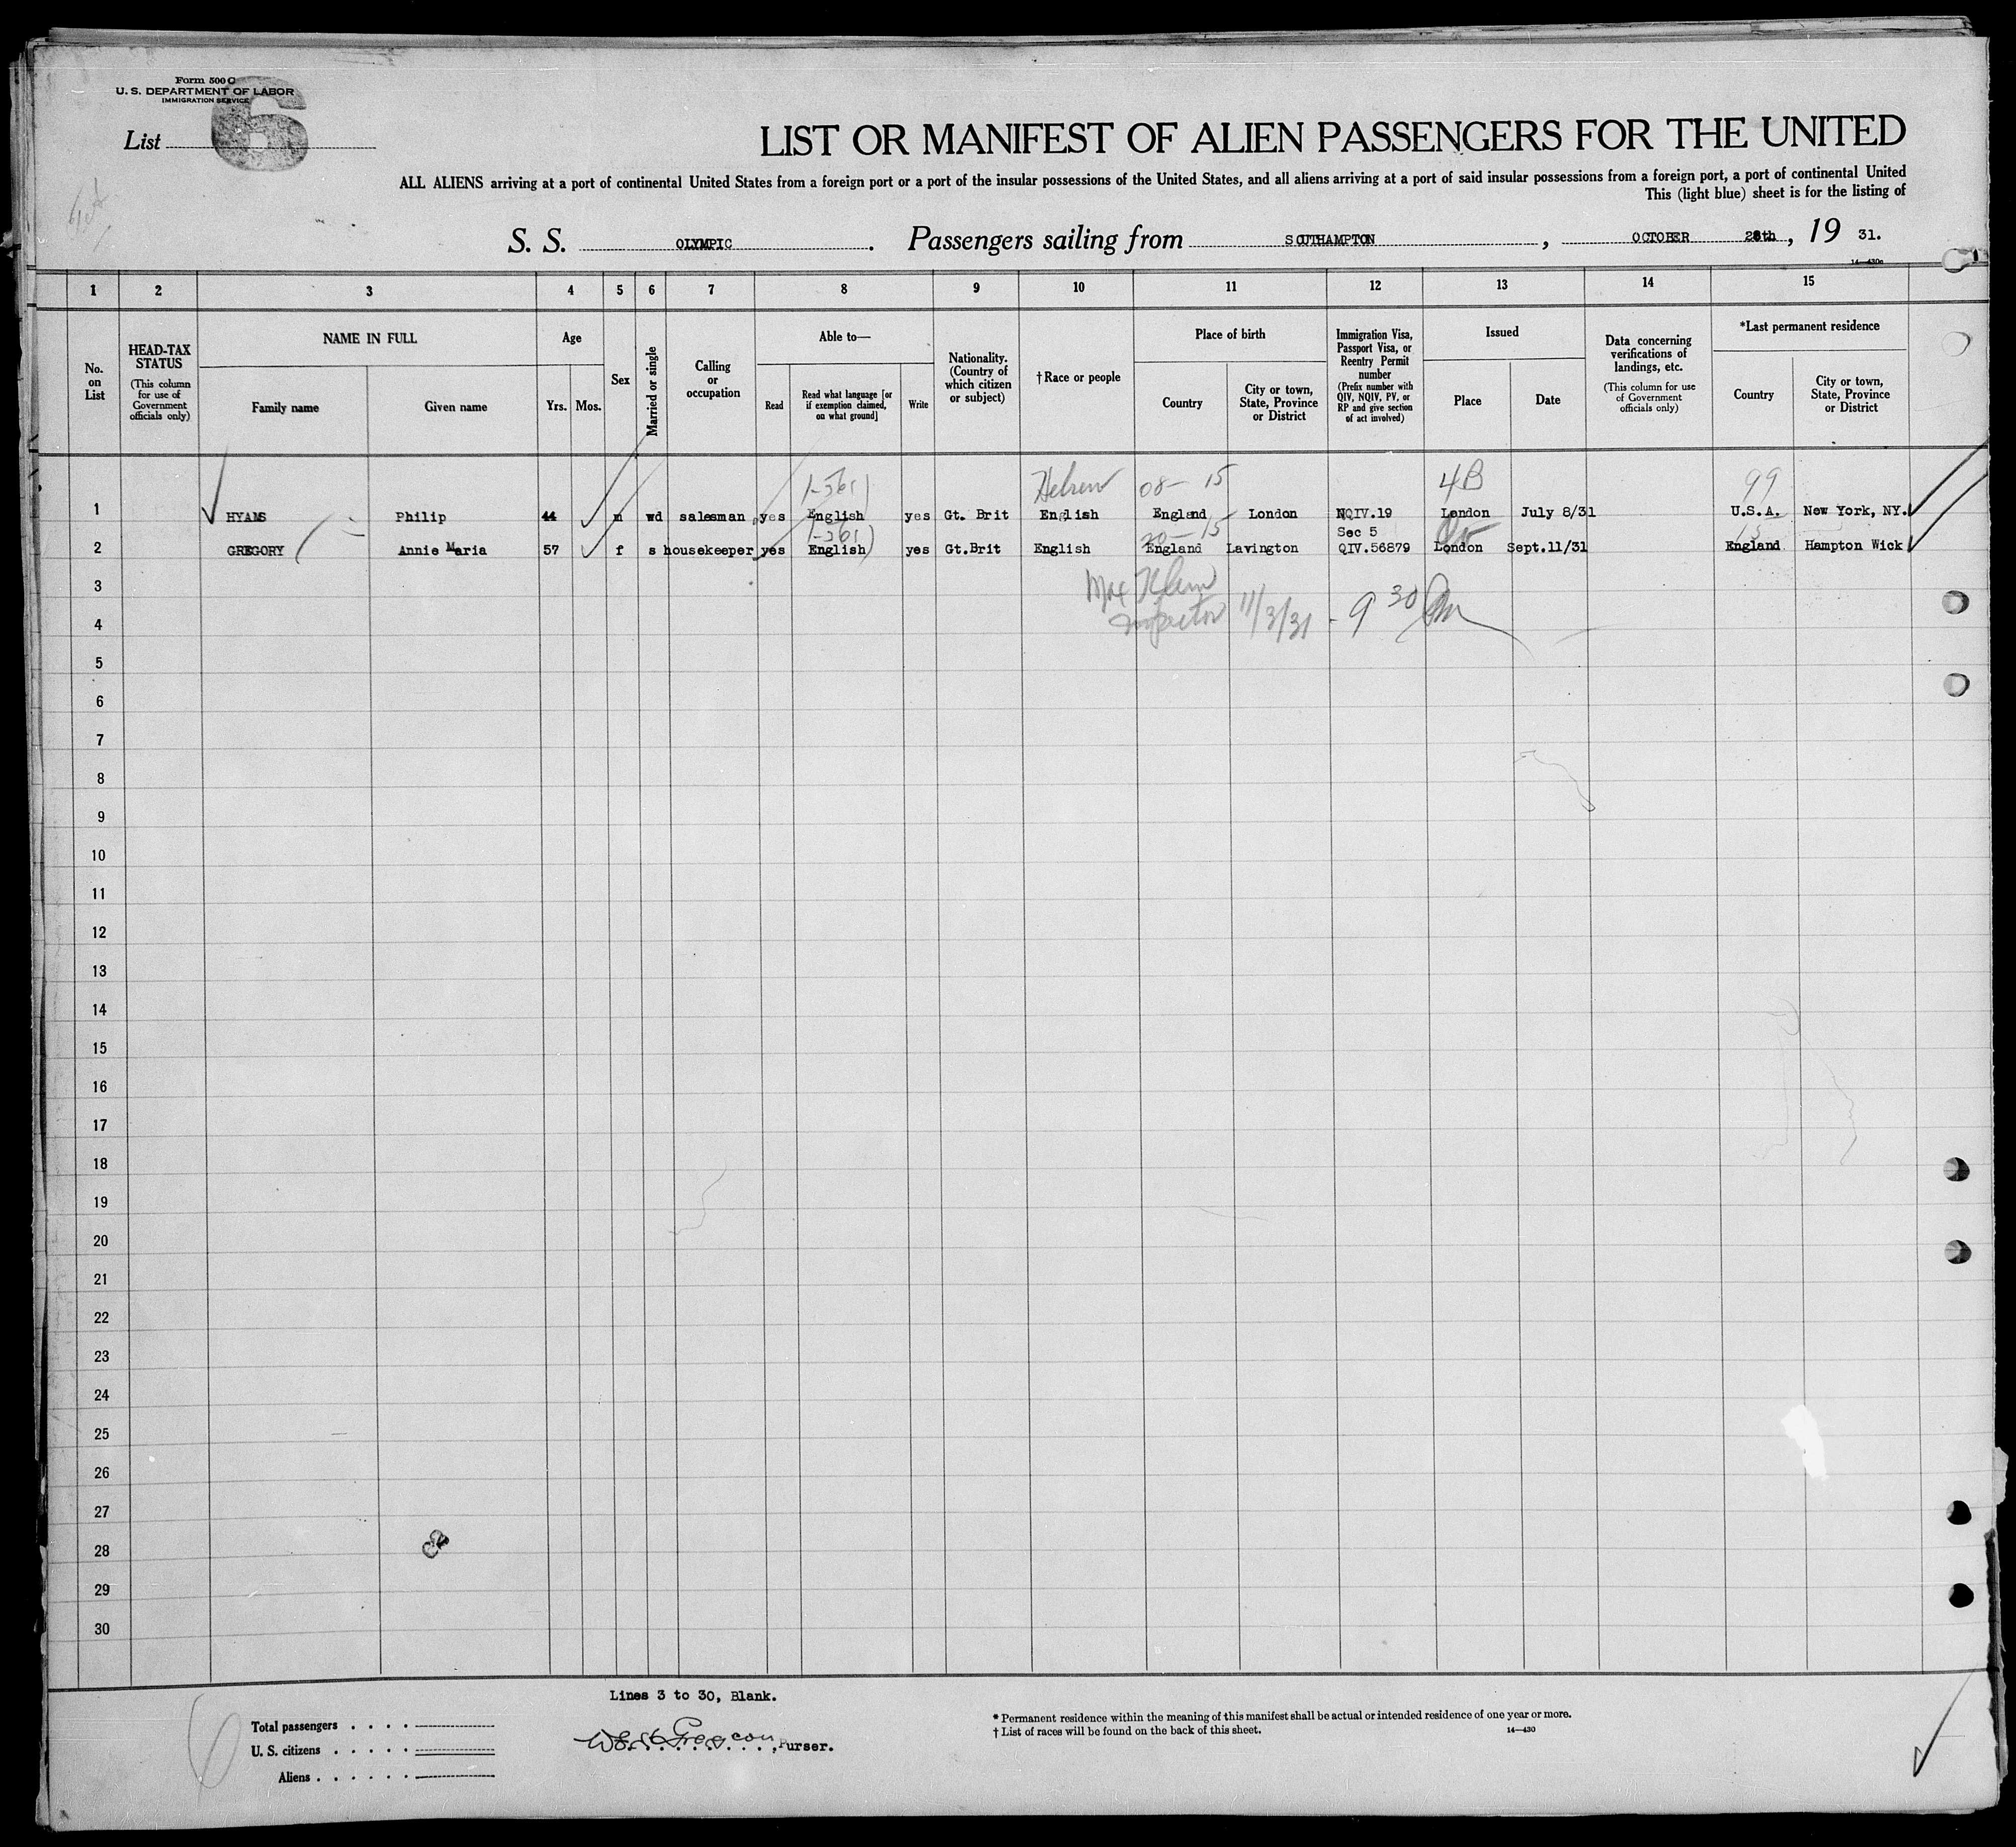 Form 500 C
U. S. DEPARTMENT OF LABOR
IMMIGRATION SERVICE
List 6
LIST OR MANIFEST OF ALIEN PASSENGERS FOR THE UNITED
ALL ALIENS arriving at a port of continental United States from a foreign port or a port of the insular possessions of the United States, and all aliens arriving at a port of said insular possessions from a foreign port, a port of continental United
This (light blue) sheet is for the listing of
S. S. OLYMPIC. Passengers sailing from SOUTHAMPTON, OCTOBER 28th, 19 31.
14—430a
1 2 3 4 5 6 7 8 9 10 11 12 13 14 15
No. on List
HEAD-TAX STATUS (This column for use of Government officials only)
NAME IN FULL
Family name Given name
Age
Yrs. Mos.
Sex
Married or single
Calling or occupation
Able to—
Read
Read what language [or if exemption claimed, on what ground]
Write
Nationality. (Country of which citizen or subject)
† Race or people
Place of birth
Country
City or town, State, Province or District
Immigration Visa, Passport Visa, or Reentry Permit number (Prefix number with QIV, NQIV, PV, or RP and give section of act involved)
Issued
Place Date
Data concerning verifications of landings, etc. (This column for use of Government officials only)
*Last permanent residence
Country
City or town, State, Province or District
1-561) Hebrew 08— 15 4B 99
1 HYAMS Philip 44 m wd salesman yes English yes Gt. Brit English England London NQIV.19 London July 8/31 U.S.A. New York, NY.
1-561) 20— 15 Sec 5 15
2 GREGORY Annie Maria 57 f s housekeeper yes English yes Gt.Brit English England Lavington QIV.56879 London Sept.11/31 England Hampton Wick
3
4 Inspector 11/3/31 - 9 30 Am
5
6
7
8
9
10
11
12
13
14
15
16
17
18
19
20
21
22
23
24
25
26
27
28
29
30
Lines 3 to 30, Blank.
Total passengers
U. S. citizens
Aliens
, Purser.
* Permanent residence within the meaning of this manifest shall be actual or intended residence of one year or more.
† List of races will be found on the back of this sheet. 14—430